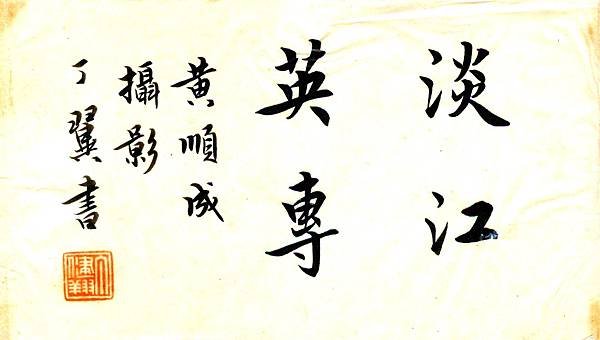 淡江
英專
黃順成
攝影
丁翼書